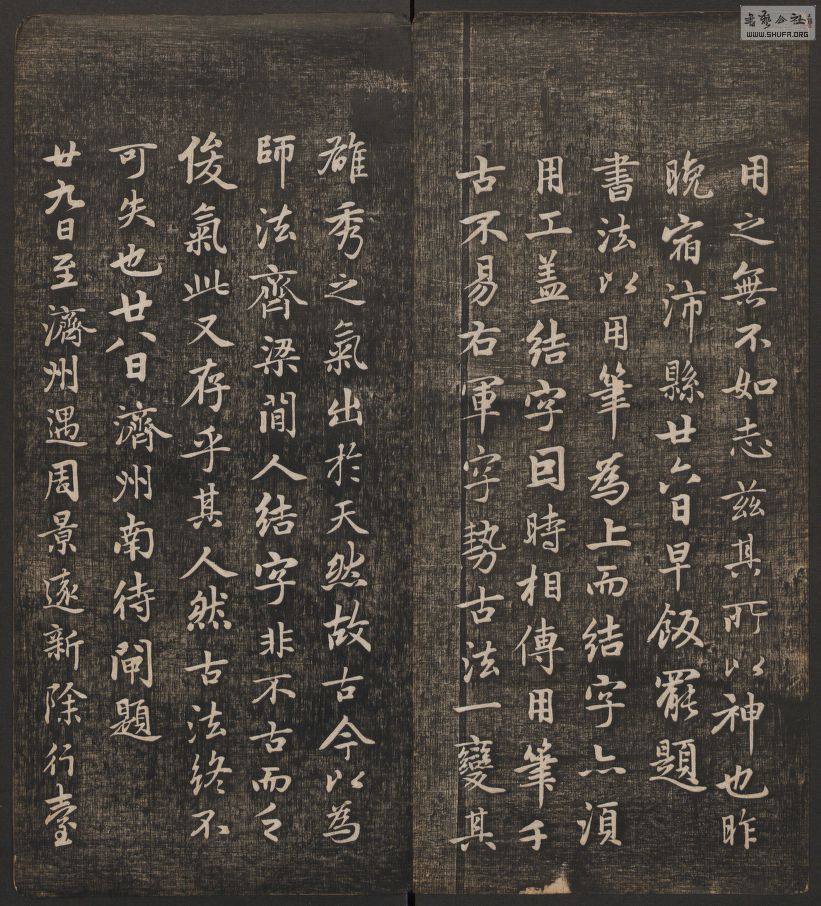 用之無不如志兹其所以神也昨
晚宿沛縣廿六日早飯罷題
書法以用筆為上而結字亦須
用工盖結字因時相傳用筆千
古不易右軍字勢古法一變其
雄秀之氣出於天然故古今以為
師法齊梁間人結字非不古而乏
俊氣此又存乎其人然古法終不
可失也廿八日濟州南待閘題
廿九日至濟州遇周景遠新除行臺
書藝公社
WWW.SHUFA.ORG